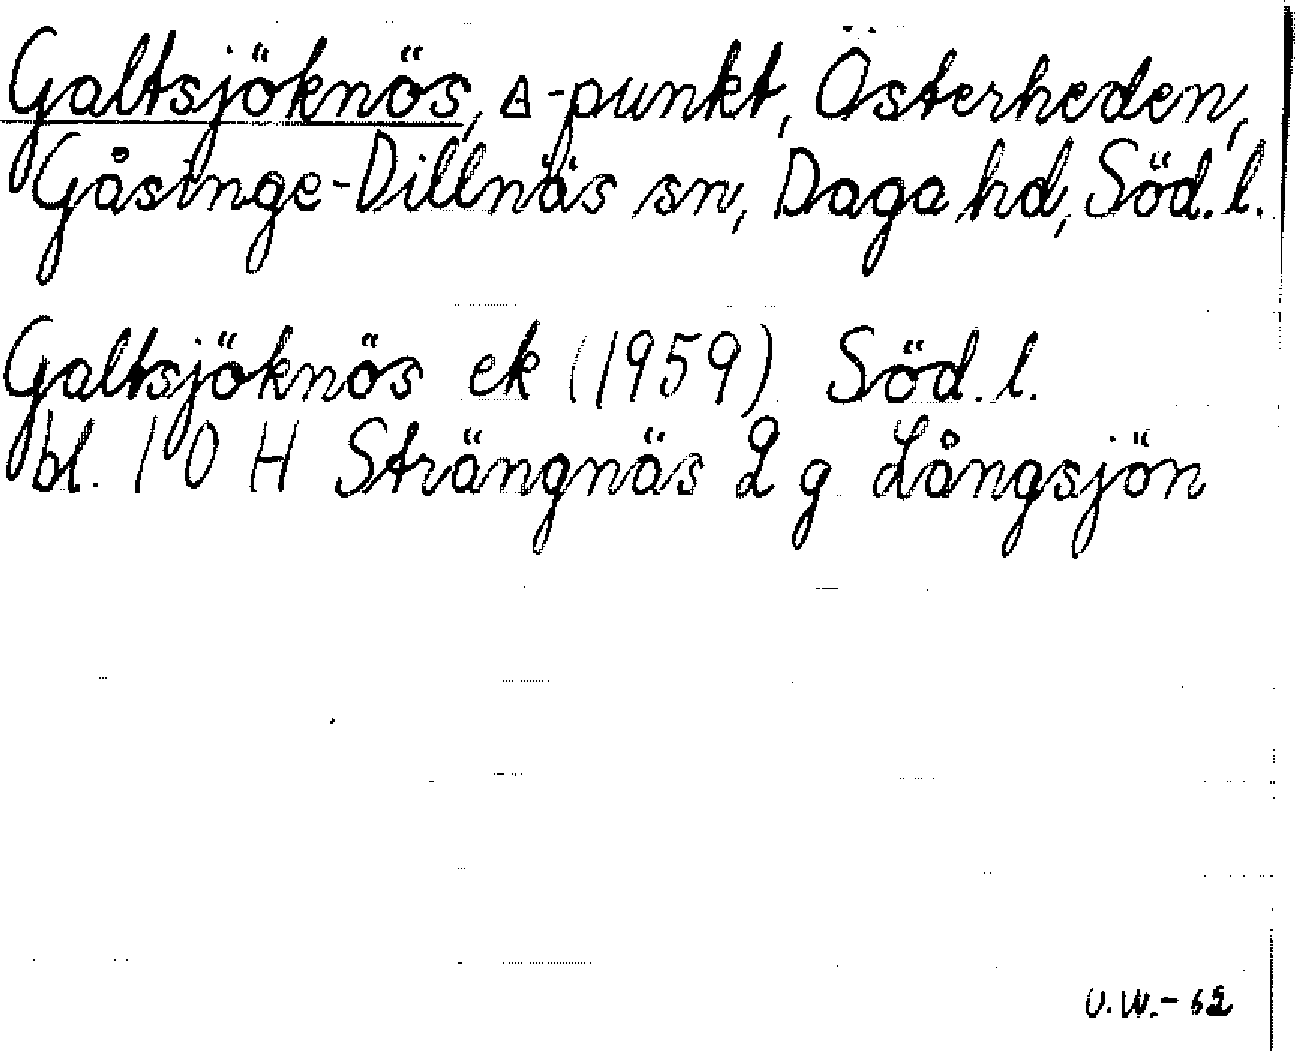 Galtsjöknös, △-punkt, Österheden,
Gåsinge-Dillnäs sn, Daga hd, Söd.l.
Galtsjöknös ek (1959) Söd.l.
bl. 10 H Strängnäs 2 g Långsjön
U.W.-62